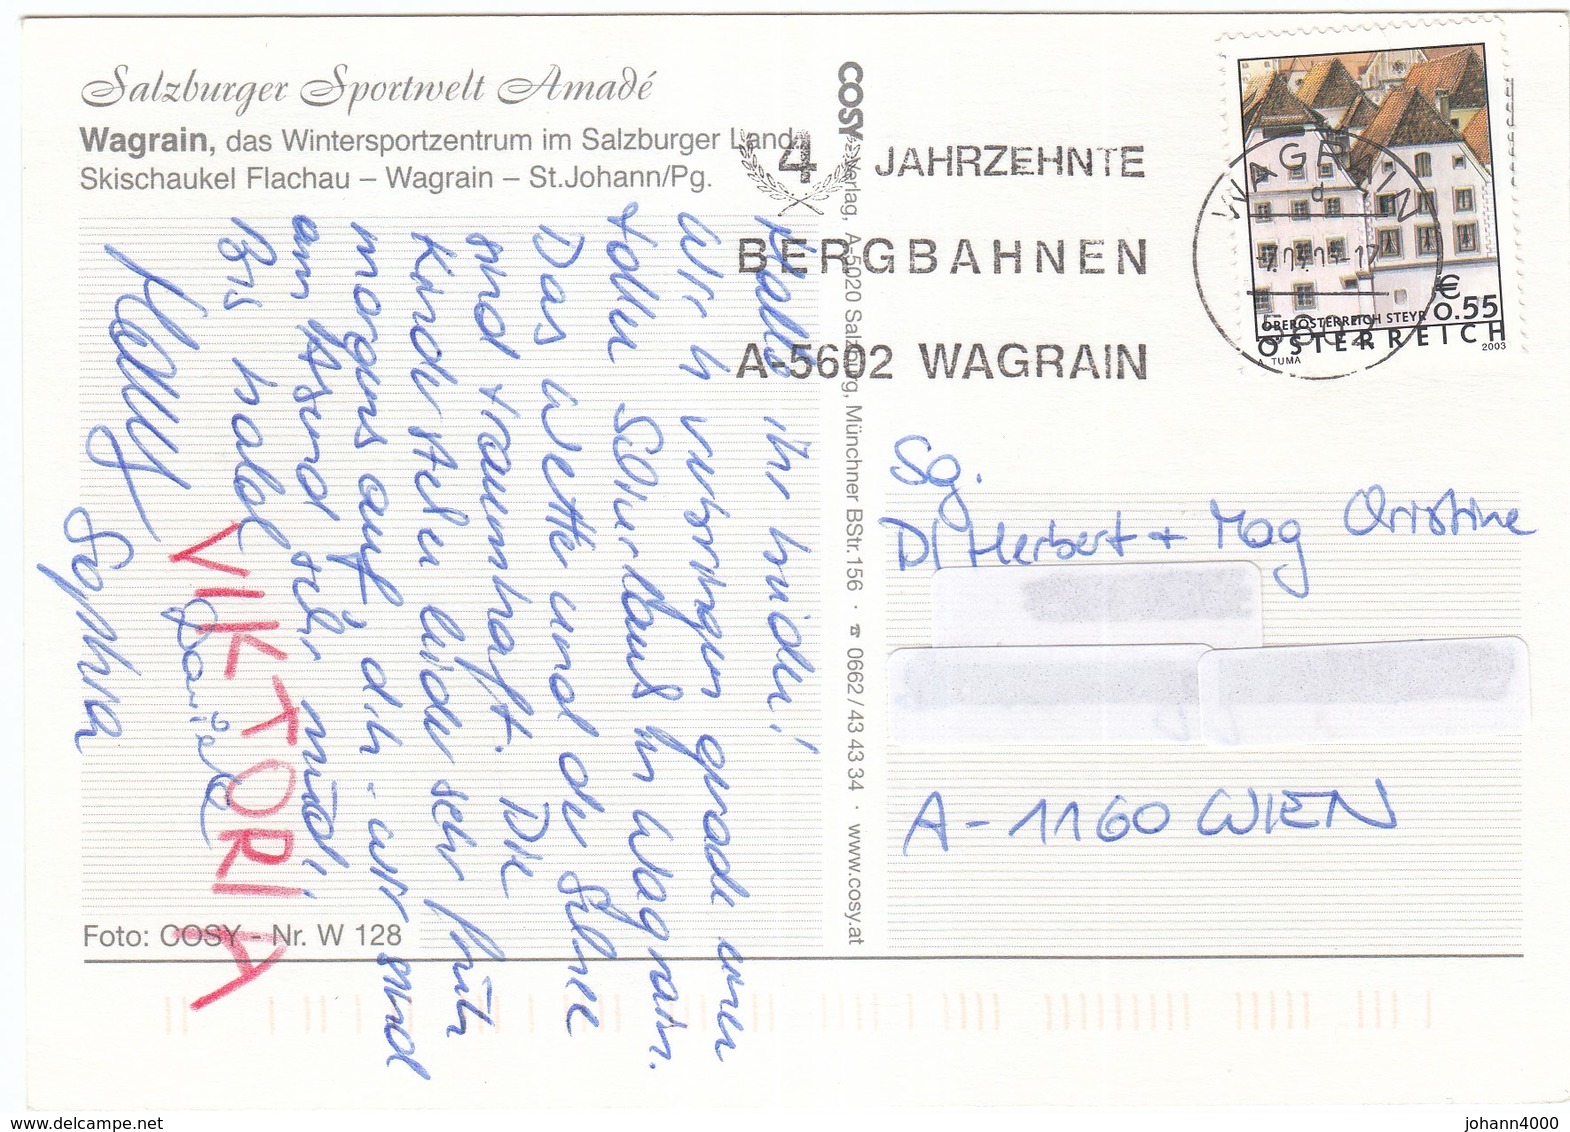 Salzburger Sportwelt Amadé
Wagrain, das Wintersportzentrum im Salzburger Land.
Skischaukel Flachau – Wagrain – St.Johann/Pg.
Hallo ihr beiden!
Wir verbringen gerade einen
tollen Schiurlaub in Wagrain.
Das Wetter und der Schnee
sind traumhaft. Die
Kinder stehen leider sehr früh
morgens auf, d.h. wir sind
am Abend sehr müd!
Bis bald
VIKTORIA
Daniela
Sophia
Foto: COSY - Nr. W 128
COSY Verlag, A-5020 Salzburg, Münchner BStr. 156 · ☎ 0662 / 43 43 34 · www.cosy.at
4 JAHRZEHNTE
BERGBAHNEN
A-5602 WAGRAIN
WAGRAIN
d
5602
€ 0.55
OBERÖSTERREICH STEYR
ÖSTERREICH
A. TUMA
2003
Sg.
DI Herbert + Mag Christine
A-1160 WIEN
delcampe.net
johann4000